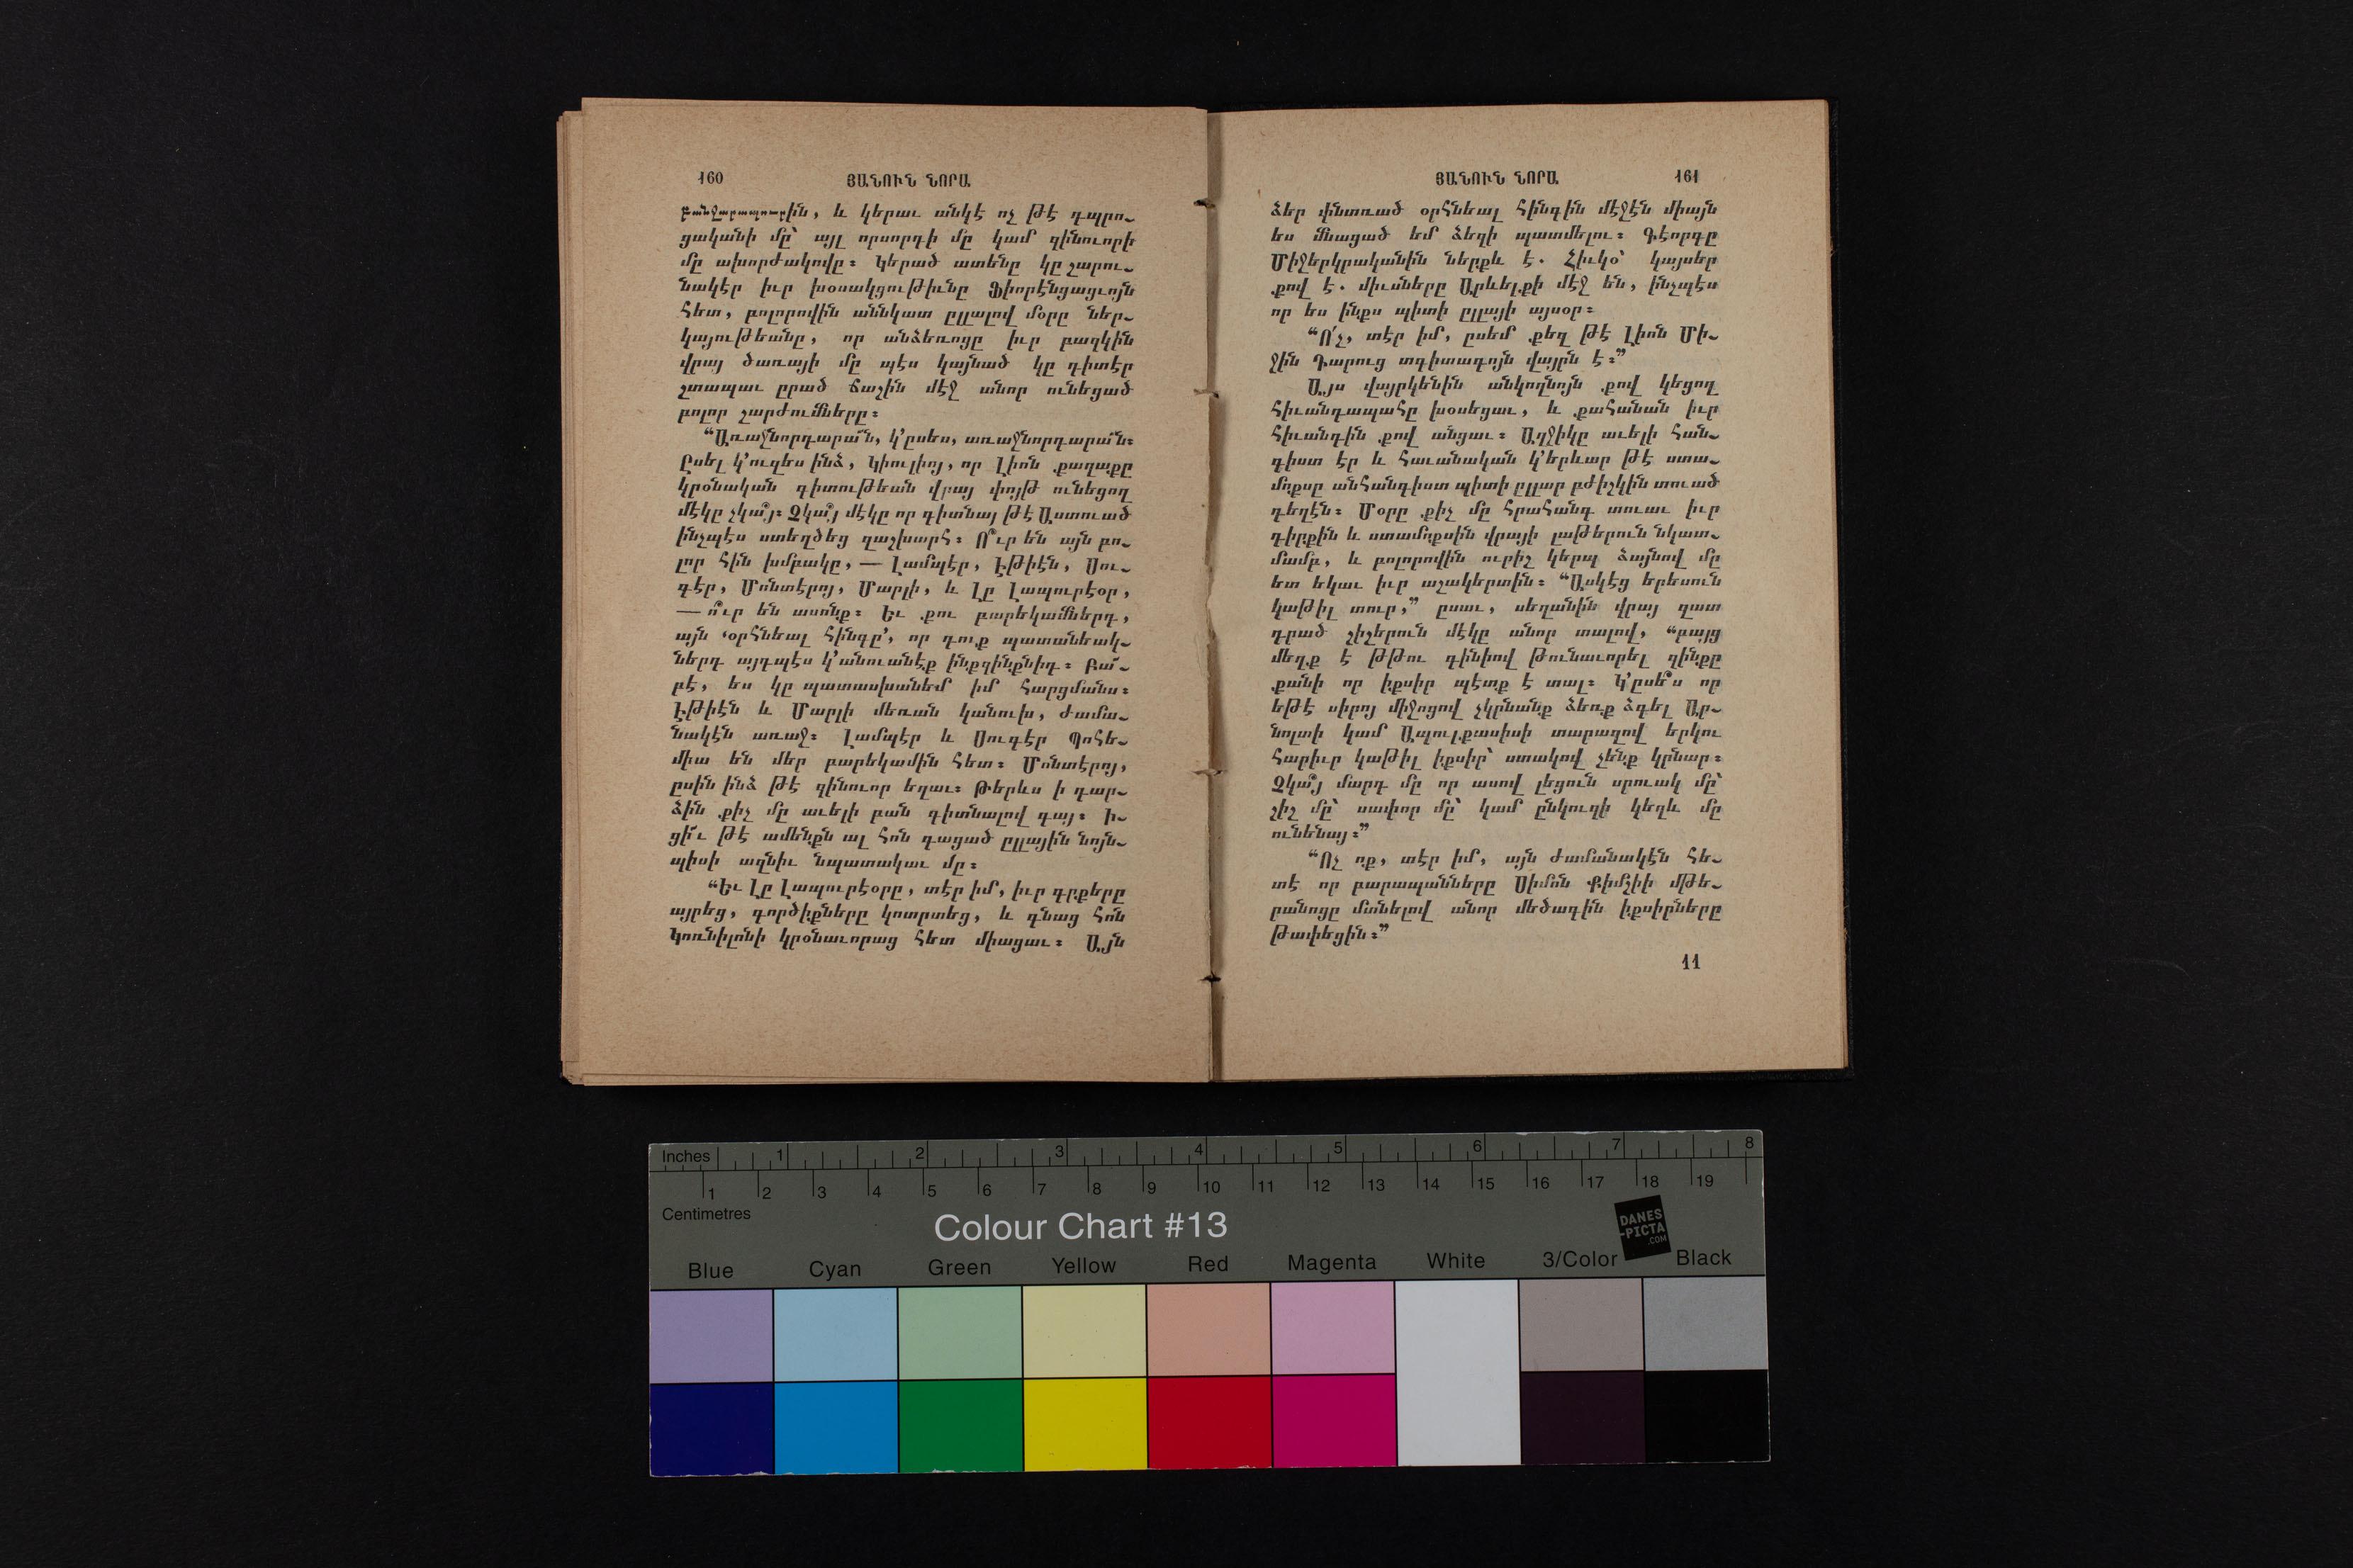 160
ՅԱՆՈՒՆ ՆՈՐԱ
բանջարապուրին, և կերաւ անկէ ոչ թէ դպրո֊
ցականի մը՝ այլ որսորդի մը կամ զինուորի
մը ախորժակովը։ Կերած ատենը կը շարու֊
նակէր իւր խօսակցութիւնը Ֆիորէնցացւոյն
հետ, բոլորովին աննկատ ըլլալով մօրը ներ֊
կայութեանը, որ անձեռոցը իւր բազկին
վրայ ծառայի մը պէս կայնած կը դիտէր
շտապաւ ըրած ճաշին մէջ անոր ունեցած
բոլոր շարժումները։
“Առաջնորդարա՜ն, կ’ըսես, առաջնորդարա՜ն։
Ըսել կ’ուզես ինձ, Կիուլիոյ, որ Լիոն քաղաքը
կրօնական գիտութեան վրայ փոյթ ունեցող
մէկը չկա՞յ։ Չկա՞յ մէկը որ գիտնայ թէ Աստուած
ինչպէս ստեղծեց զաշխարհ։ Ո՞ւր են այն բո֊
լոր հին խմբակը, — Լամպէր, Էթիէն, Սու֊
գէր, Մոնտէրոյ, Մարլի, և Լը Լապուրէօր,
— ո՞ւր են ասոնք։ Եւ քու բարեկամներդ,
այն ‘օրհնեալ հինգը’, որ դուք պատանեակ֊
ներդ այդպէս կ’անուանէք ինքզինքնիդ։ Բա՜֊
բէ, ես կը պատասխանեմ իմ հարցմանս։
Էթիէն և Մարլի մեռան կանուխ, ժամա֊
նակէն առաջ։ Լամպէր և Սուգէր Պոհե֊
միա են մեր բարեկամին հետ։ Մոնտէրոյ,
ըսին ինձ թէ զինուոր եղաւ։ Թերևս ի դար֊
ձին քիչ մը աւելի բան գիտնալով գայ։ Ի֊
ցի՜ւ թէ ամենքն ալ հոն գացած ըլլային նոյն֊
պիսի ազնիւ նպատակաւ մը։
“Եւ Լը Լապուրէօրը, տէր իմ, իւր գրքերը
այրեց, գործիքները կոտրտեց, և գնաց հոն
Կոռնիլոնի կրօնաւորաց հետ միացաւ։ Այն
ՅԱՆՈՒՆ ՆՈՐԱ
161
ձեր փնտռած օրհնեալ հինգին մէջէն միայն
ես մնացած եմ ձեզի պատմելու։ Գէորգը
Միջերկրականին ներքև է. Հիւկօ՝ կայսեր
քով է. միւսները Արևելքի մէջ են, ինչպէս
որ ես ինքս պիտի ըլլայի այսօր։
“Ո՛չ, տէր իմ, ըսեմ քեզ թէ Լիոն Մի֊
ջին Դարուց տգիտագոյն վայրն է։”
Այս վայրկենին անկողնոյն քով կեցող
հիւանդապահը խօսեցաւ, և քահանան իւր
հիւանդին քով անցաւ։ Աղջիկը աւելի հան֊
գիստ էր և հաւանական կ’երևար թէ ստա֊
մոքսը անհանգիստ պիտի ըլլար բժիշկին տուած
դեղէն։ Մօրը քիչ մը հրահանգ տուաւ իւր
դիրքին և ստամոքսին վրայի լաթերուն նկատ֊
մամբ, և բոլորովին ուրիշ կերպ ձայնով մը
ետ եկաւ իւր աշակերտին։ “Ասկէց երեսուն
կաթիլ տուր,” ըսաւ, սեղանին վրայ զատ
դրած շիշերուն մէկը անոր տալով, “բայց
մեղք է թթու գինիով թունաւորել զինքը
քանի որ իքսիր պէտք է տալ։ Կ’ըսե՞ս որ
եթէ սիրոյ միջոցով չկրնանք ձեռք ձգել Ար֊
նոլտի կամ Ապուլքասիսի տարազով երկու
հարիւր կաթիլ իքսիր՝ ստակով չենք կրնար։
Չկա՞յ մարդ մը որ ասով լեցուն սրուակ մը՝
շիշ մը՝ սափոր մը՝ կամ ընկուզի կեղև մը
ունենայ։”
“Ոչ ոք, տէր իմ, այն ժամանակէն հե֊
տէ որ բարապանները Սիմոն Քիմչիի մթե֊
րանոցը մտնելով անոր մեծագին իքսիրները
թափեցին։”
11
Inches 1 2 3 4 5 6 7 8
1 2 3 4 5 6 7 8 9 10 11 12 13 14 15 16 17 18 19
Centimetres
Colour Chart #13
DANES
-PICTA
.COM
Blue Cyan Green Yellow Red Magenta White 3/Color Black